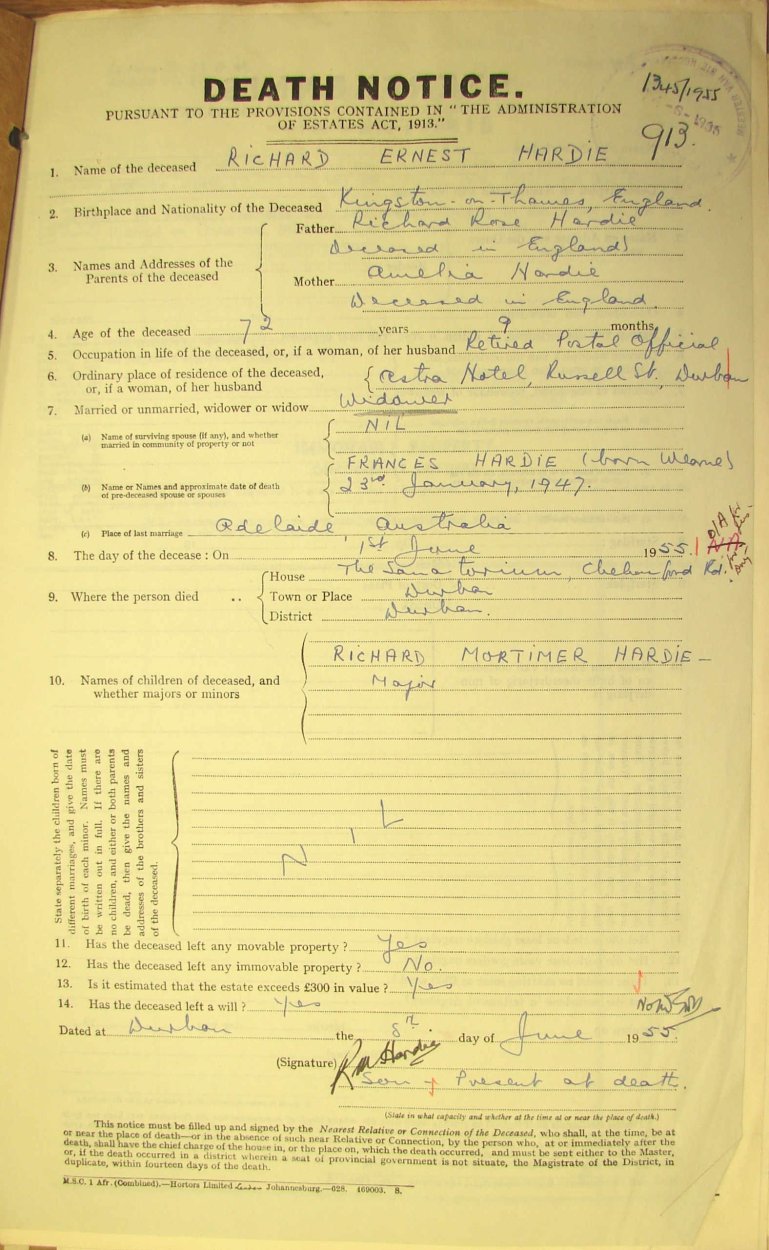 DEATH NOTICE.
1345/1955
PURSUANT TO THE PROVISIONS CONTAINED IN "THE ADMINISTRATION
OF ESTATES ACT, 1913."
913.
1. Name of the deceased RICHARD ERNEST HARDIE
2. Birthplace and Nationality of the Deceased Kingston-on-Thames, England.
3. Names and Addresses of the Parents of the deceased
Father Richard Rose Hardie
Deceased in England)
Mother Amelia Hardie
Deceased in England.
4. Age of the deceased 72 years 9 months
5. Occupation in life of the deceased, or, if a woman, of her husband Retired Postal Official
6. Ordinary place of residence of the deceased, or, if a woman, of her husband Astra Hotel, Russell St, Durban
7. Married or unmarried, widower or widow Widower
(a) Name of surviving spouse (if any), and whether married in community of property or not NIL
(b) Name or Names and approximate date of death of pre-deceased spouse or spouses FRANCES HARDIE (born Wearne)
23rd January, 1947.
(c) Place of last marriage Adelaide Australia
8. The day of the decease : On 1st June 1955.
9. Where the person died ..
House The Sanatorium, Chelmsford Rd.
Town or Place Durban
District Durban.
10. Names of children of deceased, and whether majors or minors
RICHARD MORTIMER HARDIE -
Major
State separately the children born of
different marriages, and give the date
of birth of each minor. Names must
be written out in full. If there are
no children, and either or both parents
be dead, then give the names and
addresses of the brothers and sisters
of the deceased.
NIL
11. Has the deceased left any movable property ? Yes
12. Has the deceased left any immovable property ? No.
13. Is it estimated that the estate exceeds £300 in value ? Yes
14. Has the deceased left a will ? Yes
Dated at Durban the 8th day of June 1955.
(Signature) RM Hardie
Son & Present at death.
(State in what capacity and whether at the time at or near the place of death.)
This notice must be filled up and signed by the Nearest Relative or Connection of the Deceased, who shall, at the time, be at
or near the place of death—or in the absence of such near Relative or Connection, by the person who, at or immediately after the
death, shall have the chief charge of the house in, or the place on, which the death occurred, and must be sent either to the Master,
or, if the death occurred in a district wherein a seat of provincial government is not situate, the Magistrate of the District, in
duplicate, within fourteen days of the death.
M.S.C. 1 Afr. (Combined).—Hortors Limited Johannesburg.—628. 469003. 8.